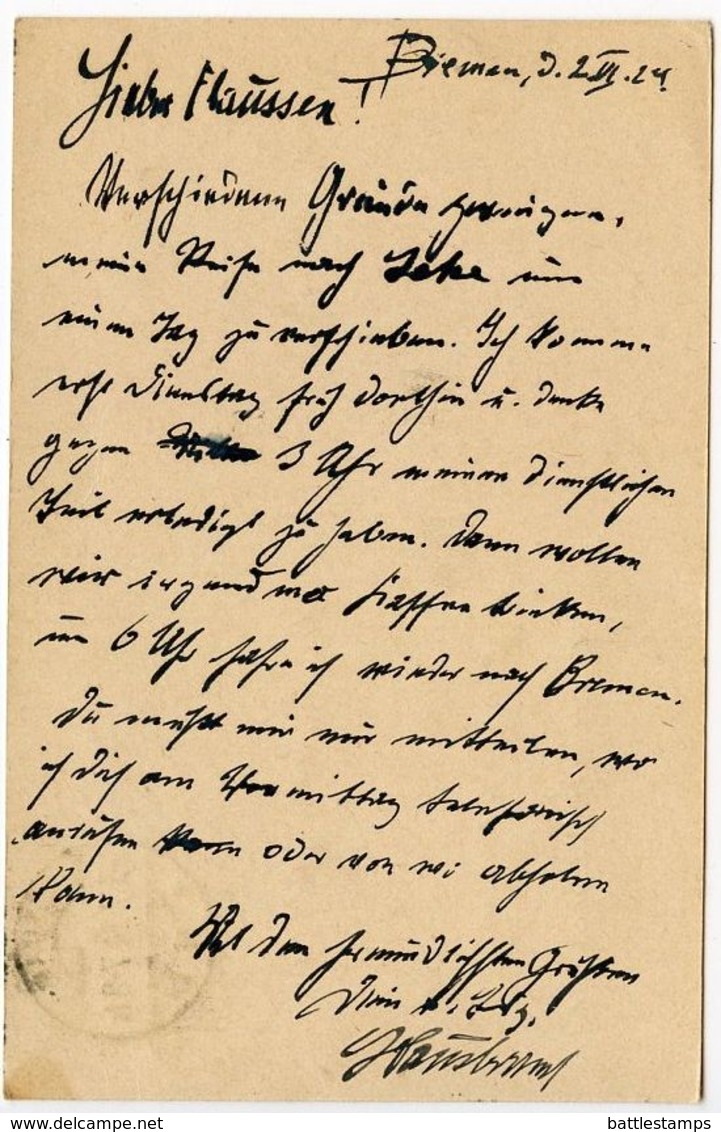 Bremen, d. 2. VI. 24.
Lieber Claussen!
Verschiedene Gründe zwingen,
meine Reise nach Lehe um
einen Tag zu verschieben. Ich komme
erst Dienstag früh dorthin u. denke
gegen 3 Uhr meinen dienstlichen
Teil erledigt zu haben. Dann wollen
wir irgendwo Kaffee trinken,
um 6 Uhr fahre ich wieder nach Bremen.
Du mußt mir nur mitteilen, wo
ich Dich am Vormittag telefonisch
anrufen kann oder von wo abholen
kann.
Mit den freundlichsten Grüßen
Dein
battlestamps